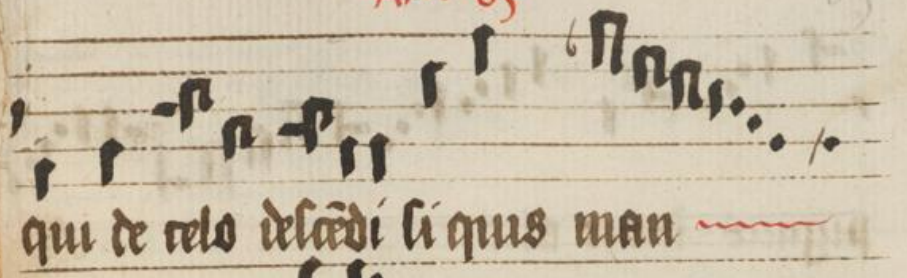 qui de celo descēdi si quis man